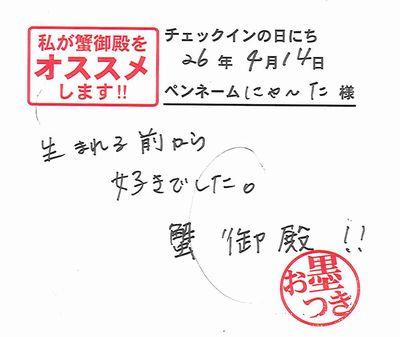 私が蟹御殿を
オススメ
します!!
チェックインの日にち
26年4月14日
ペンネームにゃんた様
生まれる前から
好きでした。
蟹御殿!!
お墨つき